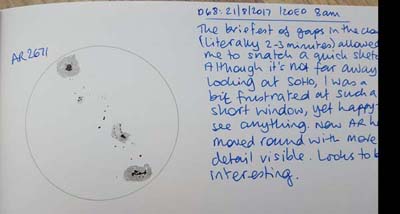 AR2671
068: 21/8/2017 120ED 8am
The briefest of gaps in the clou
(literally 2-3 minutes) allowed
me to snatch a quick sket
Although it's not far away
looking at SOHO, I was a
bit frustrated at such a
short window, yet happy
see anything. Now AR h
moved round with more
detail visible. Looks to b
interesting.